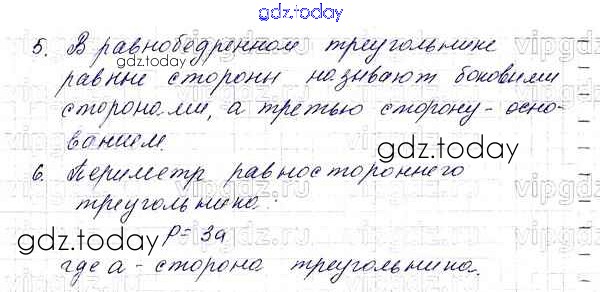 gdz.today
5. В равнобедренном треугольнике
равные стороны называют боковыми
сторонами, а третью сторону - осно-
ванием.
gdz.today
6. Периметр равностороннего
треугольника:
gdz.today
P = 3a
где a - сторона треугольника.